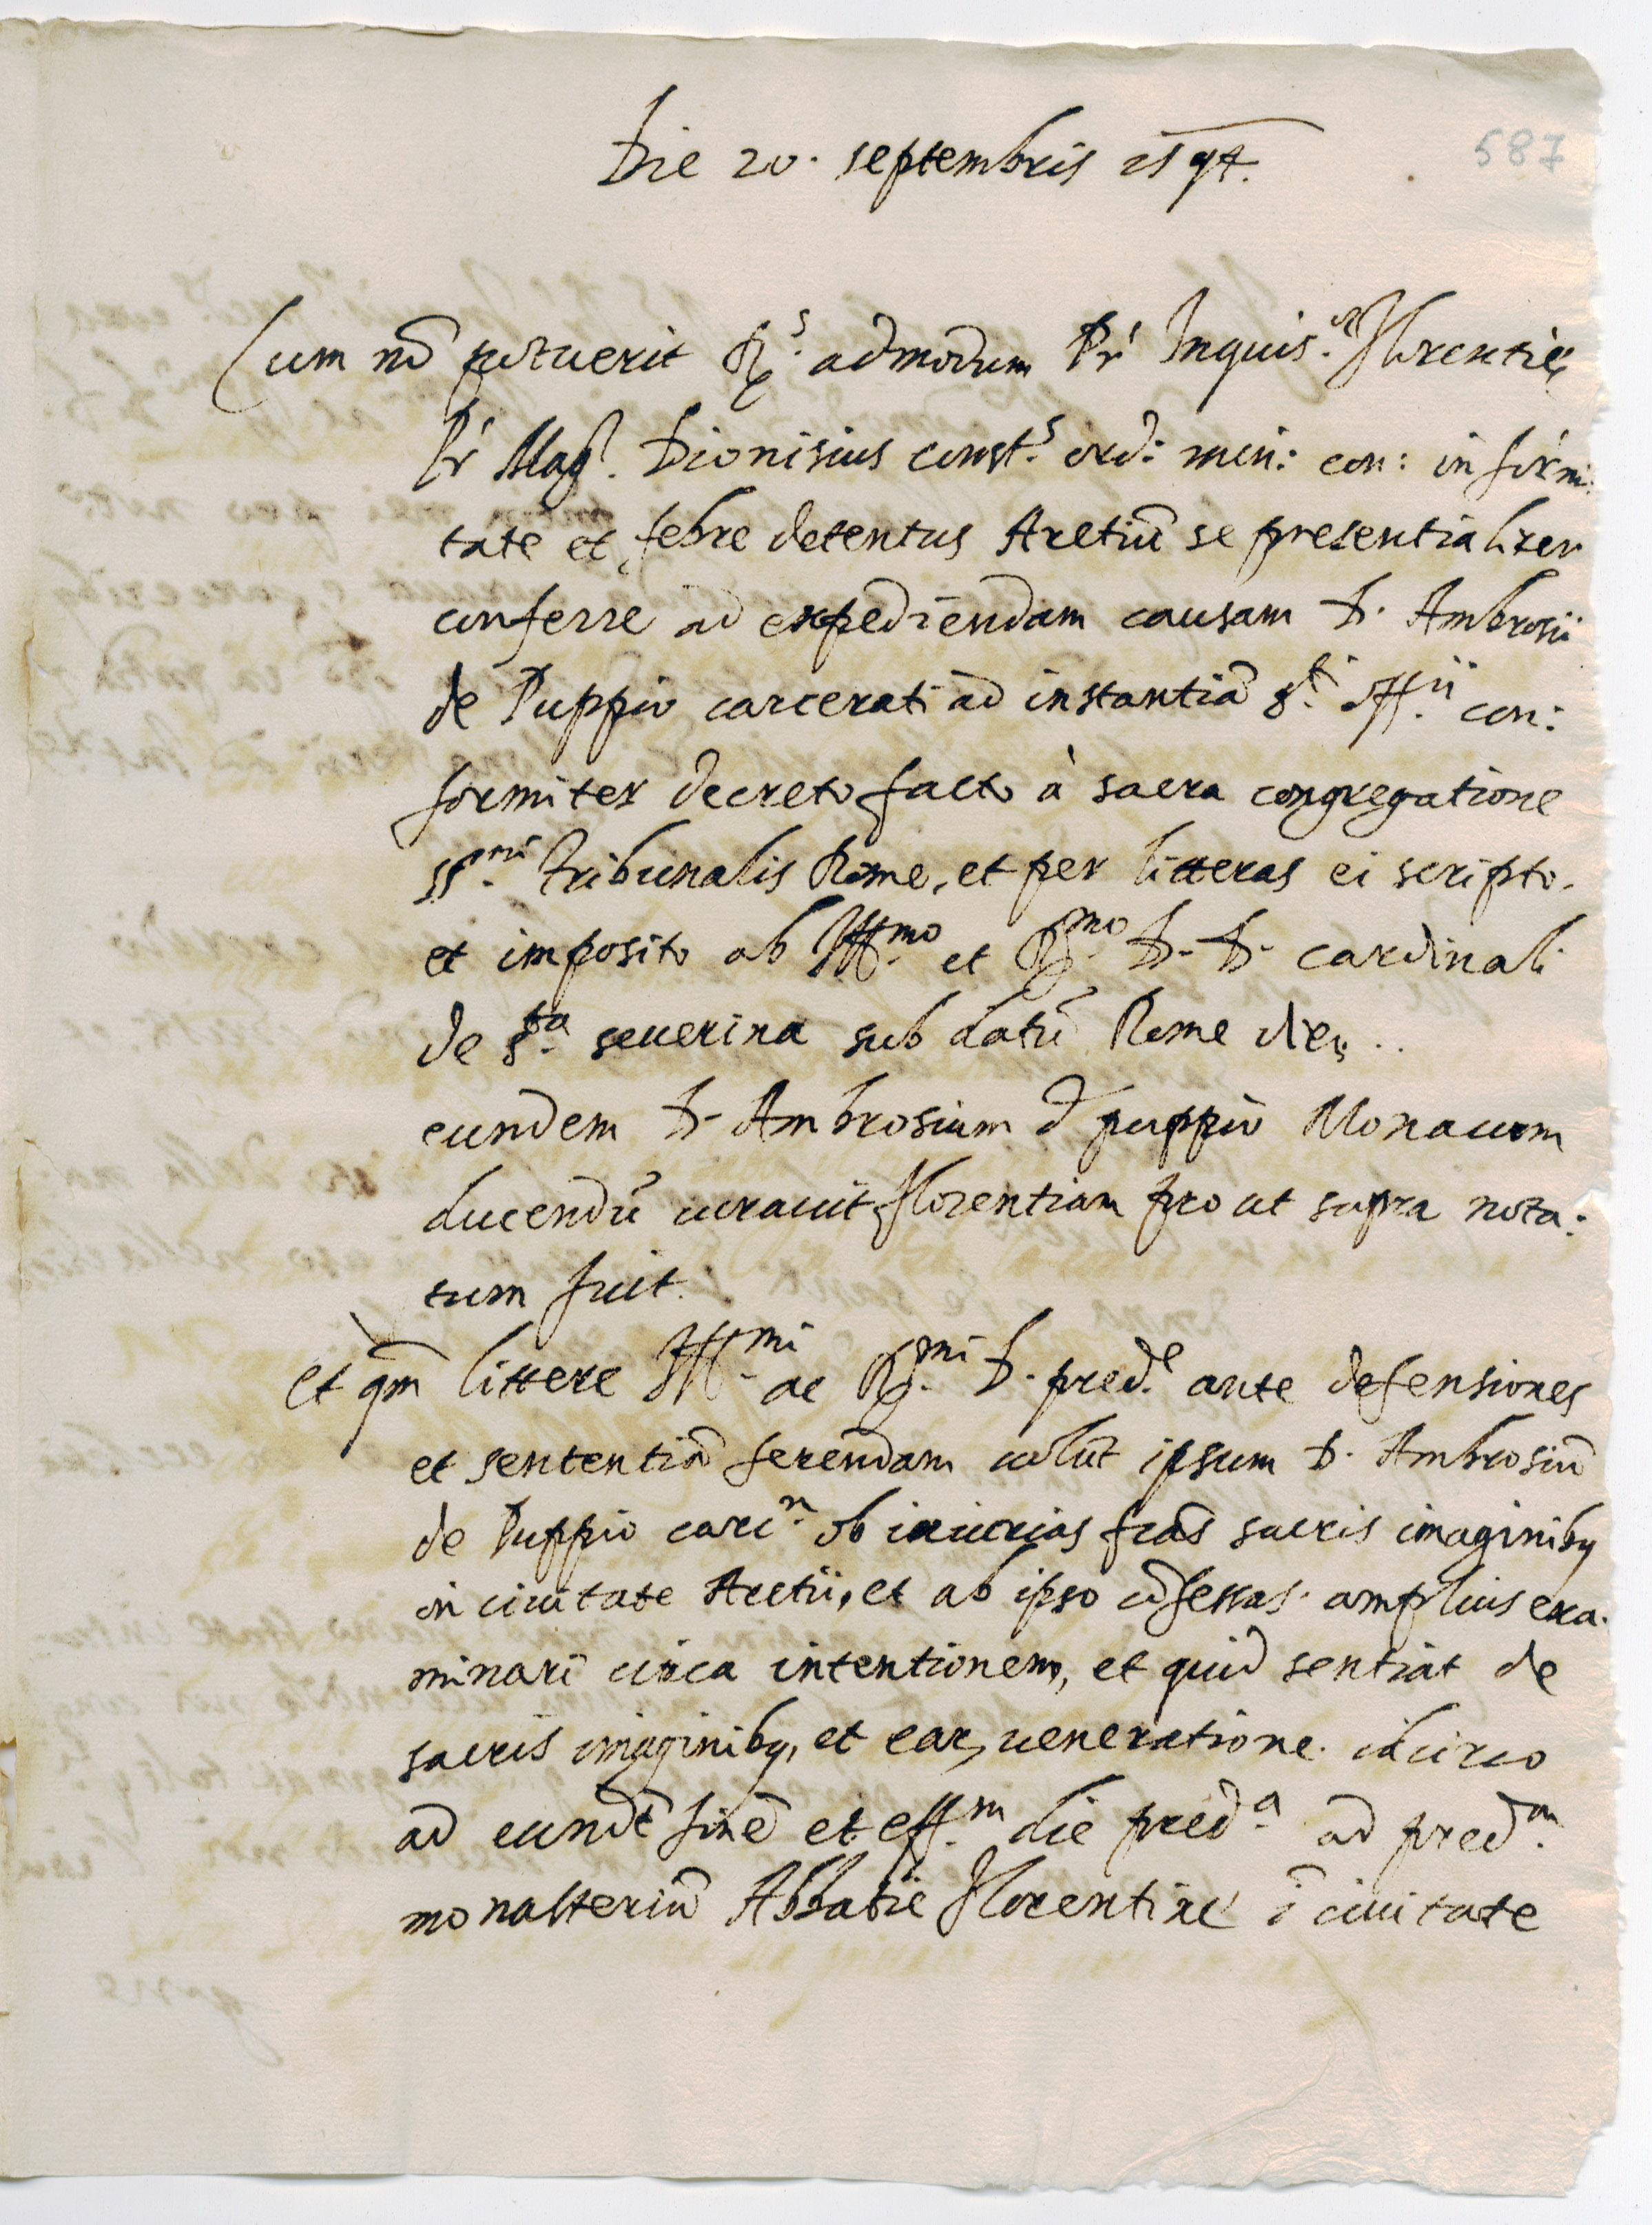 Die 20. septembris 1594.
587
Cum nō potuerit R.s admodum Pr Inquis.r Florentię
Pr Mag.r Dionisius const.s ord: min: con: infirmi:
tate et febre detentus Aretiū se presentialiter
conferre ad expediendam causam D. Ambrosii
de Puppio carcerati ad instantiā S.ti Off.ii con:
formiter decreto facto à sacra congregatione
SS.mi tribunalis Rome, et per litteras ei scripto.
et imposito ab Ill.mo et R.mo D. D. cardinali
de S.ta seuerina sub datū Rome die ..
eundem D. Ambrosium d puppio Monacum
ducendū curauit Florentiam pro ut supra nota:
tum fuit.
Et qm̄ littere Ill.mi ac R.mi D. pred.e ante defensiones
et sententiā ferendam uolūt ipsum D. Ambrosiū
de Puppio carc.m ob iniurias fcās sacris imaginibꝫ
in ciuitate Aretii, et ab ipso cōfessas. amplius exa.
minari circa intentionem, et quid sentiat de
sacris imaginibꝫ, et earꝫ ueneratione. idcirco
ad eundē finē et eff.m die pred.a ad pred.m
monasteriū Abbatie Florentine ī ciuitate